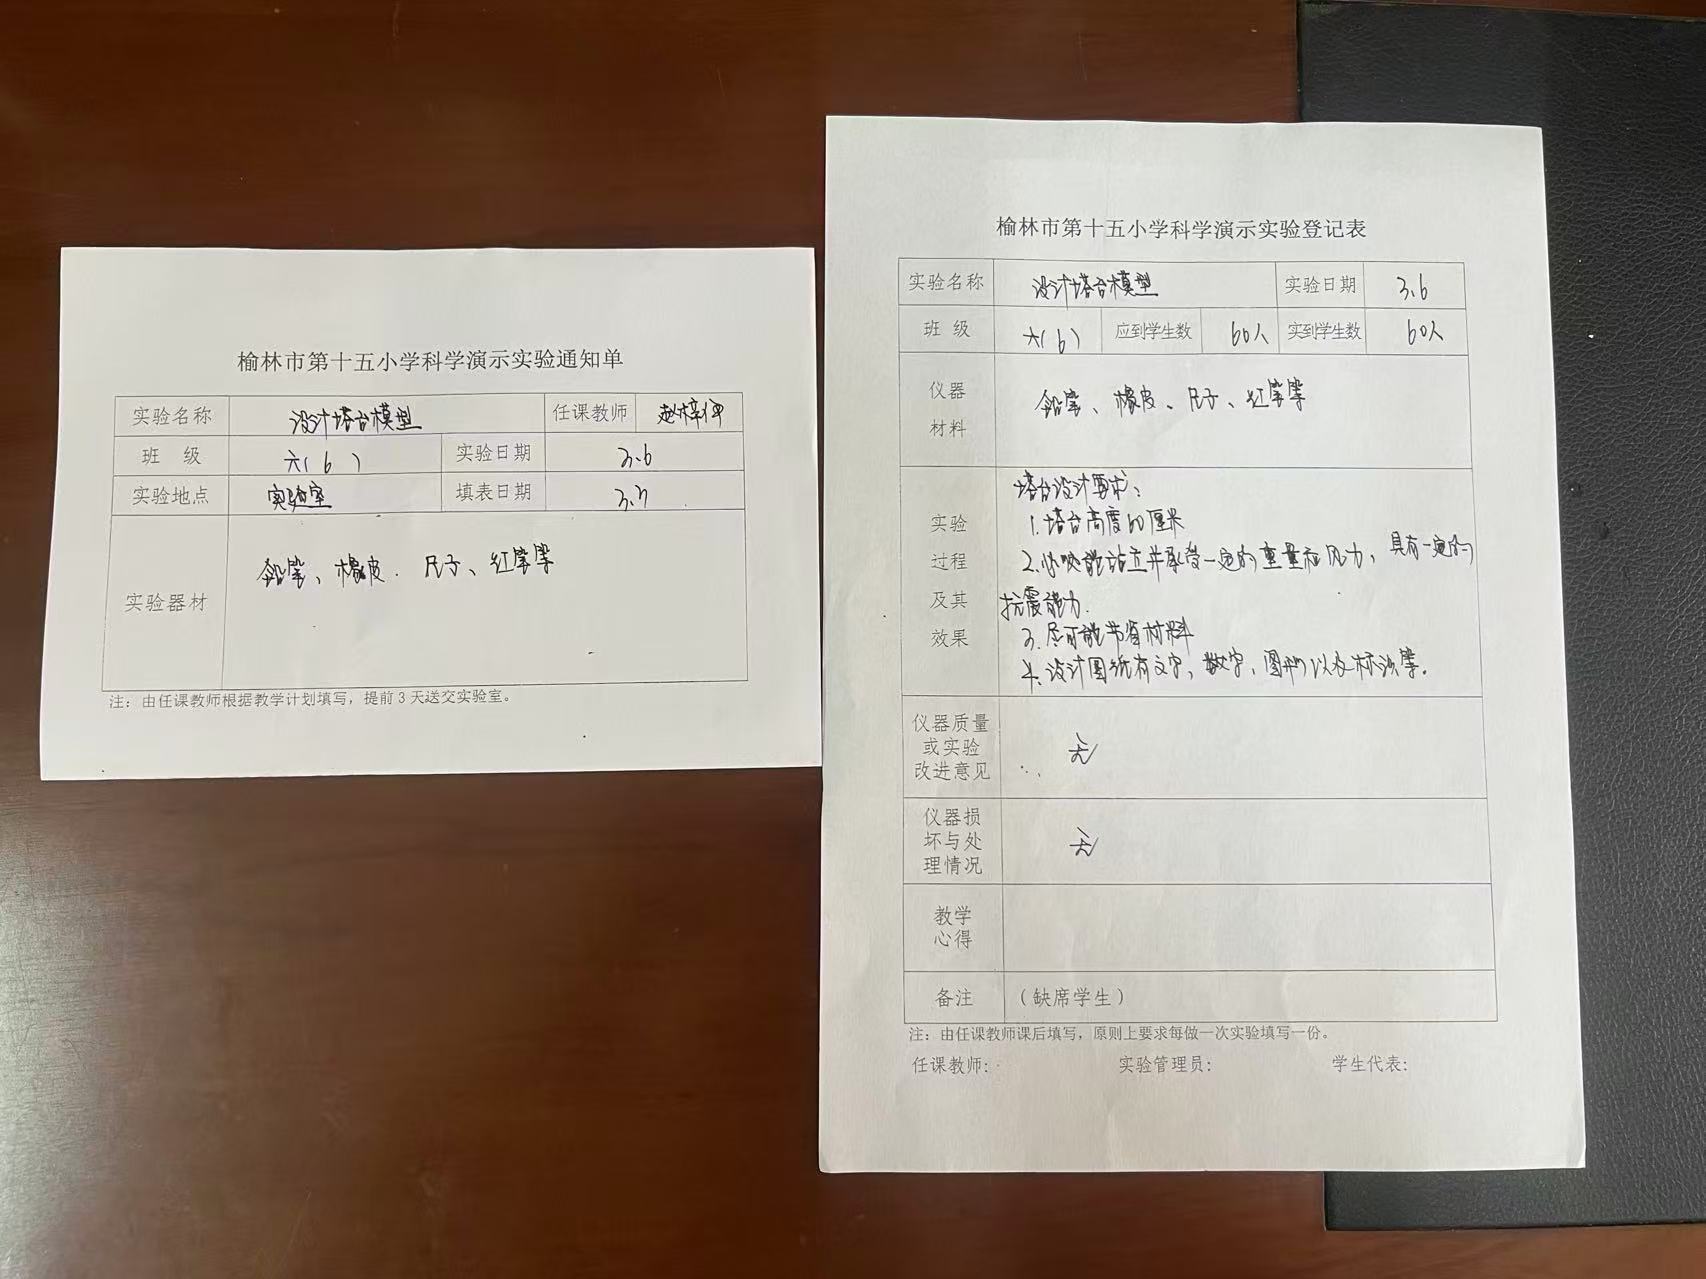 榆林市第十五小学科学演示实验通知单
实验名称 设计塔台模型 任课教师
班 级 六(6) 实验日期 3.6
实验地点 实验室 填表日期
实验器材 铅笔、橡皮、尺子、红笔等
注：由任课教师根据教学计划填写，提前3天送交实验室。
榆林市第十五小学科学演示实验登记表
实验名称 设计塔台模型 实验日期 3.6
班 级 六(6) 应到学生数 60人 实到学生数 60人
仪器
材料
铅笔、橡皮、尺子、红笔等
实验
过程
及其
效果
塔台设计要求：
1.塔台高度60厘米
2.必须能站立并承受一定的重量和风力，具有一定的
抗震能力.
3.尽可能节省材料
4.设计图纸有文字、数字、图形以及标识等.
仪器质量
或实验
改进意见
无
仪器损
坏与处
理情况
无
教学
心得
备注 （缺席学生）
注：由任课教师课后填写，原则上要求每做一次实验填写一份。
任课教师: 实验管理员: 学生代表: